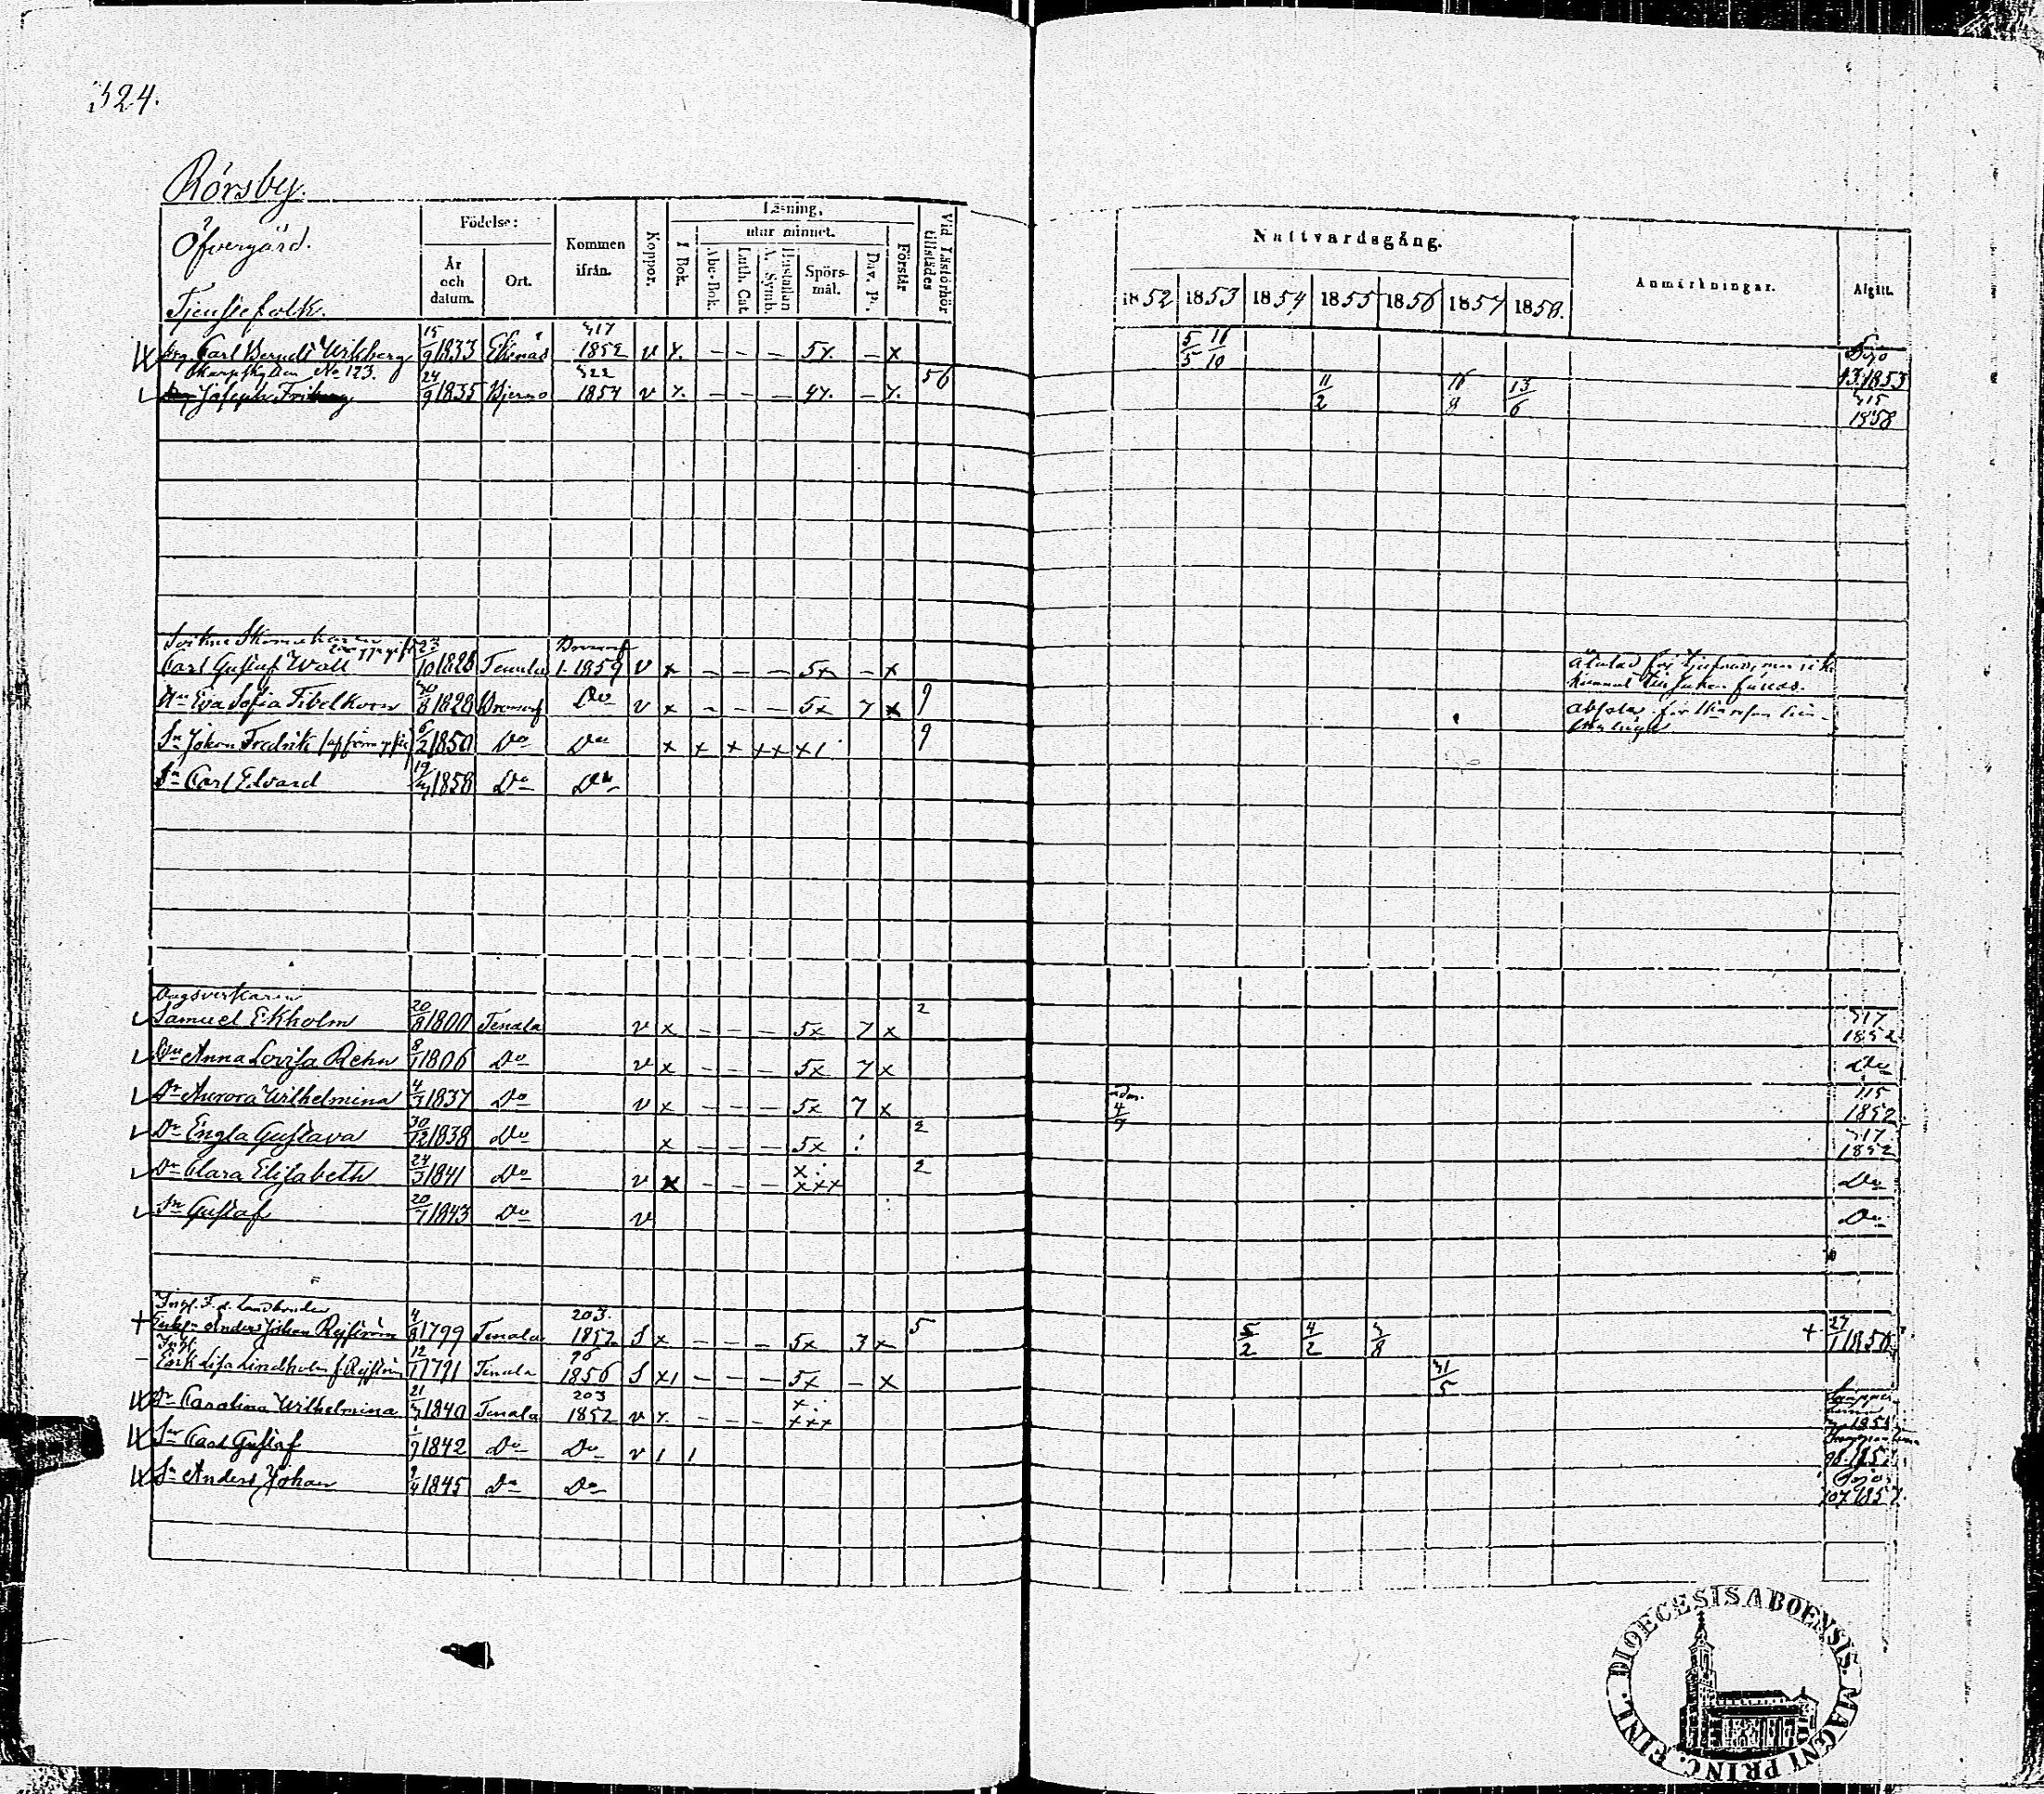 324.
Rörsby.
Öfvergård.
Tjenstefolk.
Födelse:
År och datum.
Ort.
Kommen ifrån.
Koppor.
Läsning,
utur minnet.
I Bok.
Abc-Bok.
Luth. Cat
Hustaflan A. Symb.
Spörsmål.
Dav. Ps.
Förstår
Vid Läsförhör tillstädes
Nattvardsgång.
1852 1853 1854 1855 1856 1857 1858.
Anmärkningar.
Afgått.
Drg. Carl Berndt Wikberg 15/9 1833 Ekenäs 317 1852 v x. – – – 5x. – x 5/5 16/10 Pojo 43.1853
No 123.
Josephe 24/9 1835 Bjerno 322 1854 v x. – – – 4x. – x. 56 11/2 18/8 13/6 315 1858
Carl Gustaf Wall 23/10 1828 Tenala Bromarf 1.1859 v x – – – 5x – x
Hu Eva Sofia Tibelkorn 30/8 1828 Bromarf Do v x – – – 5x 7 x 9
Sn Johan Fredrik 6/2 1850 Do Do x x x xx x1 9
Sn Carl Edvard 19/4 1858 Do Do
Dagsverkaren
Samuel Ekholm 20/8 1800 Tenala v x – – – 5x 7 x 2 317 1852
Hu Anna Lovisa Rehn 8/1 1806 Do v x – – – 5x 7 x Do
Dr Aurora Wilhelmina 4/3 1837 Do v x – – – 5x 7 x adm. 4/7 115 1852
Dr Engla Gustava 30/12 1838 Do x – – – 5x : 2 317 1852
Dr Clara Elisabeth 24/3 1841 Do v x – – – x : xxx 2 Do
Sn Gustaf 20/7 1843 Do v Do
Inhys. F.d. Landbonden
Enkln Anders Johan Refström 4/8 1799 Tenala 203. 1852 S x – – – 5x 3 x 5 5/2 4/2 3/8 + 27/1 1856
Inhys
Enk Lisa Lindholm f. Refström 12/1 1791 Tenala 96 1856 S x1 – – – 5x – x 31/5
Dr Carolina Wilhelmina 21/3 1840 Tenala 203 1852 v x. – – – x : xxx
Sn Carl Gustaf 1/9 1842 Do Do v 1 1 98.1857
Sn Anders Johan 2/4 1845 Do Do Pojo 107.1857.
FINL. DIOECESIS ABOENSIS. MAGNI PRINC.